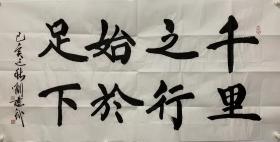 千里
之行
始於
足下
己亥之秋劉建武